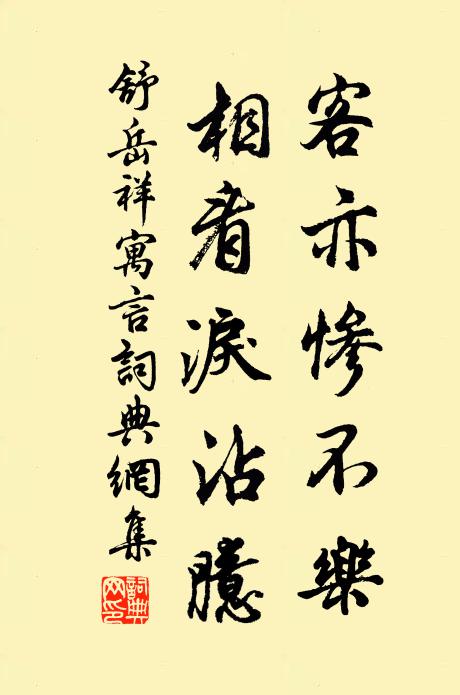 客亦惨不樂
相看淚沾臆
舒岳祥寓言詞典網集
詞典
网印